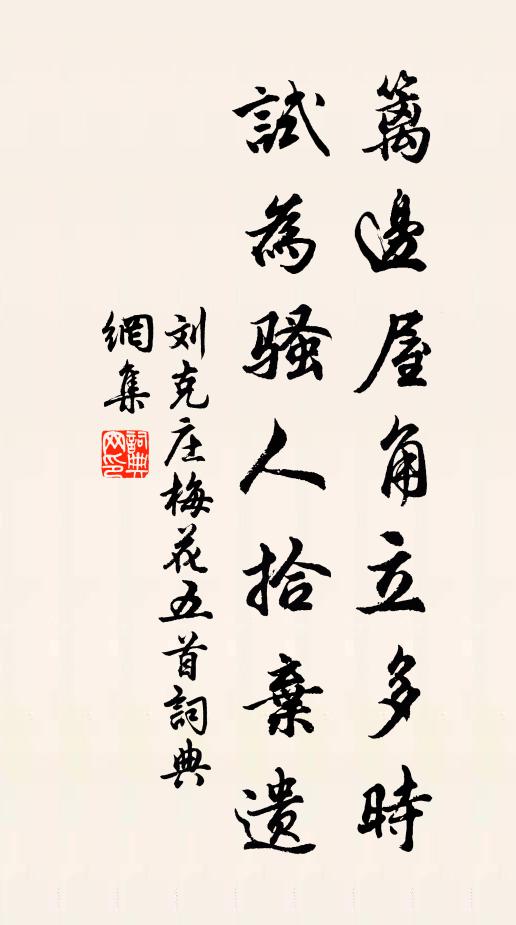 籬邊屋角立多時
試為騷人拾棄遺
刘克庄梅花五首詞典
網集
詞典網印